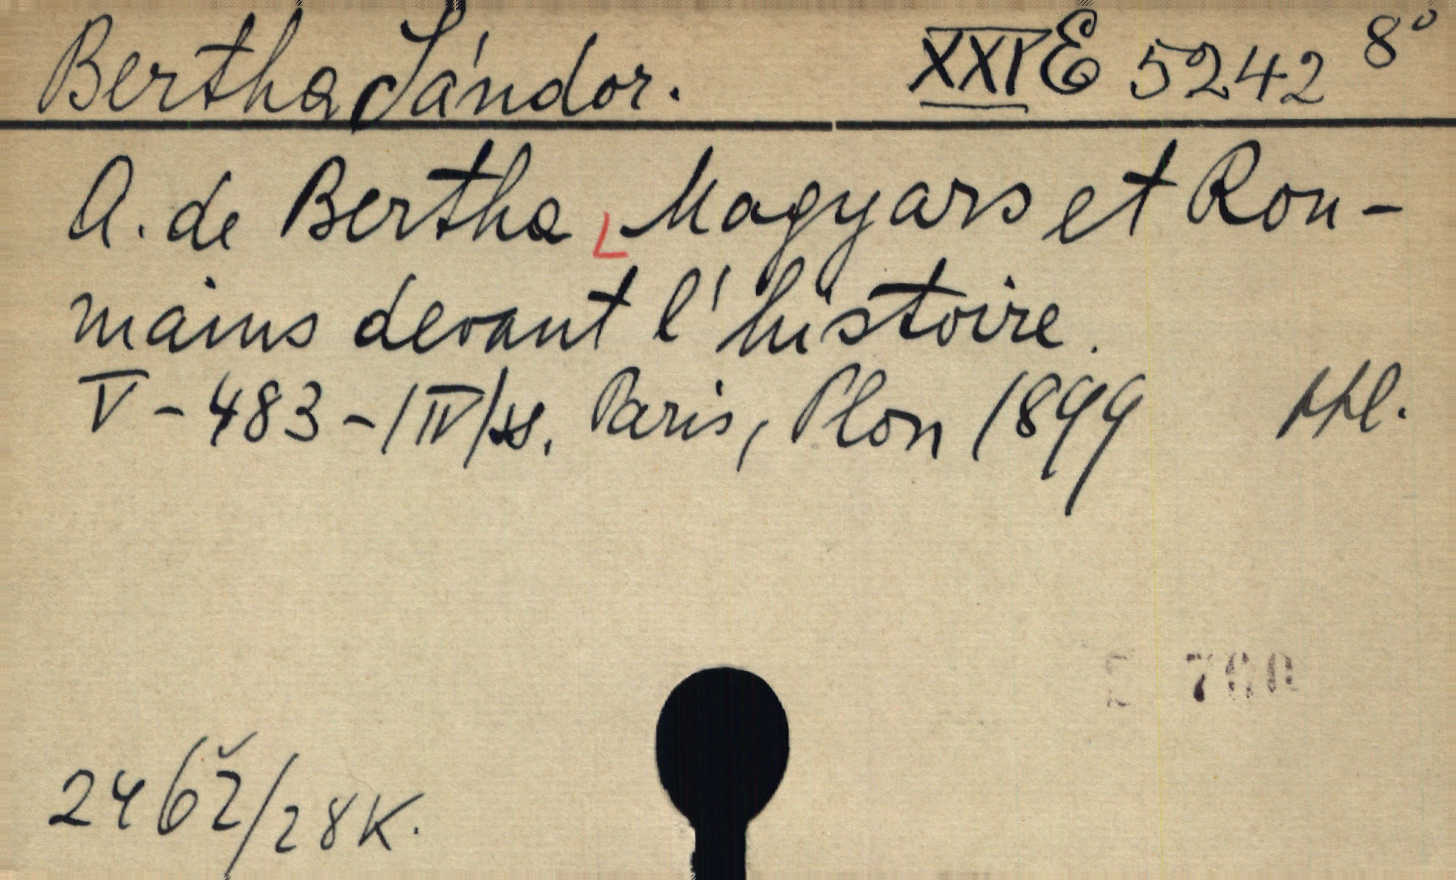 Bertha Sándor. XXI E 5242 8°
A. de Bertha, Magyars et Rou-
mains devant l'histoire.
V - 483 - /IV/ss. Paris, Plon 1899 ppl.
2462/28K.